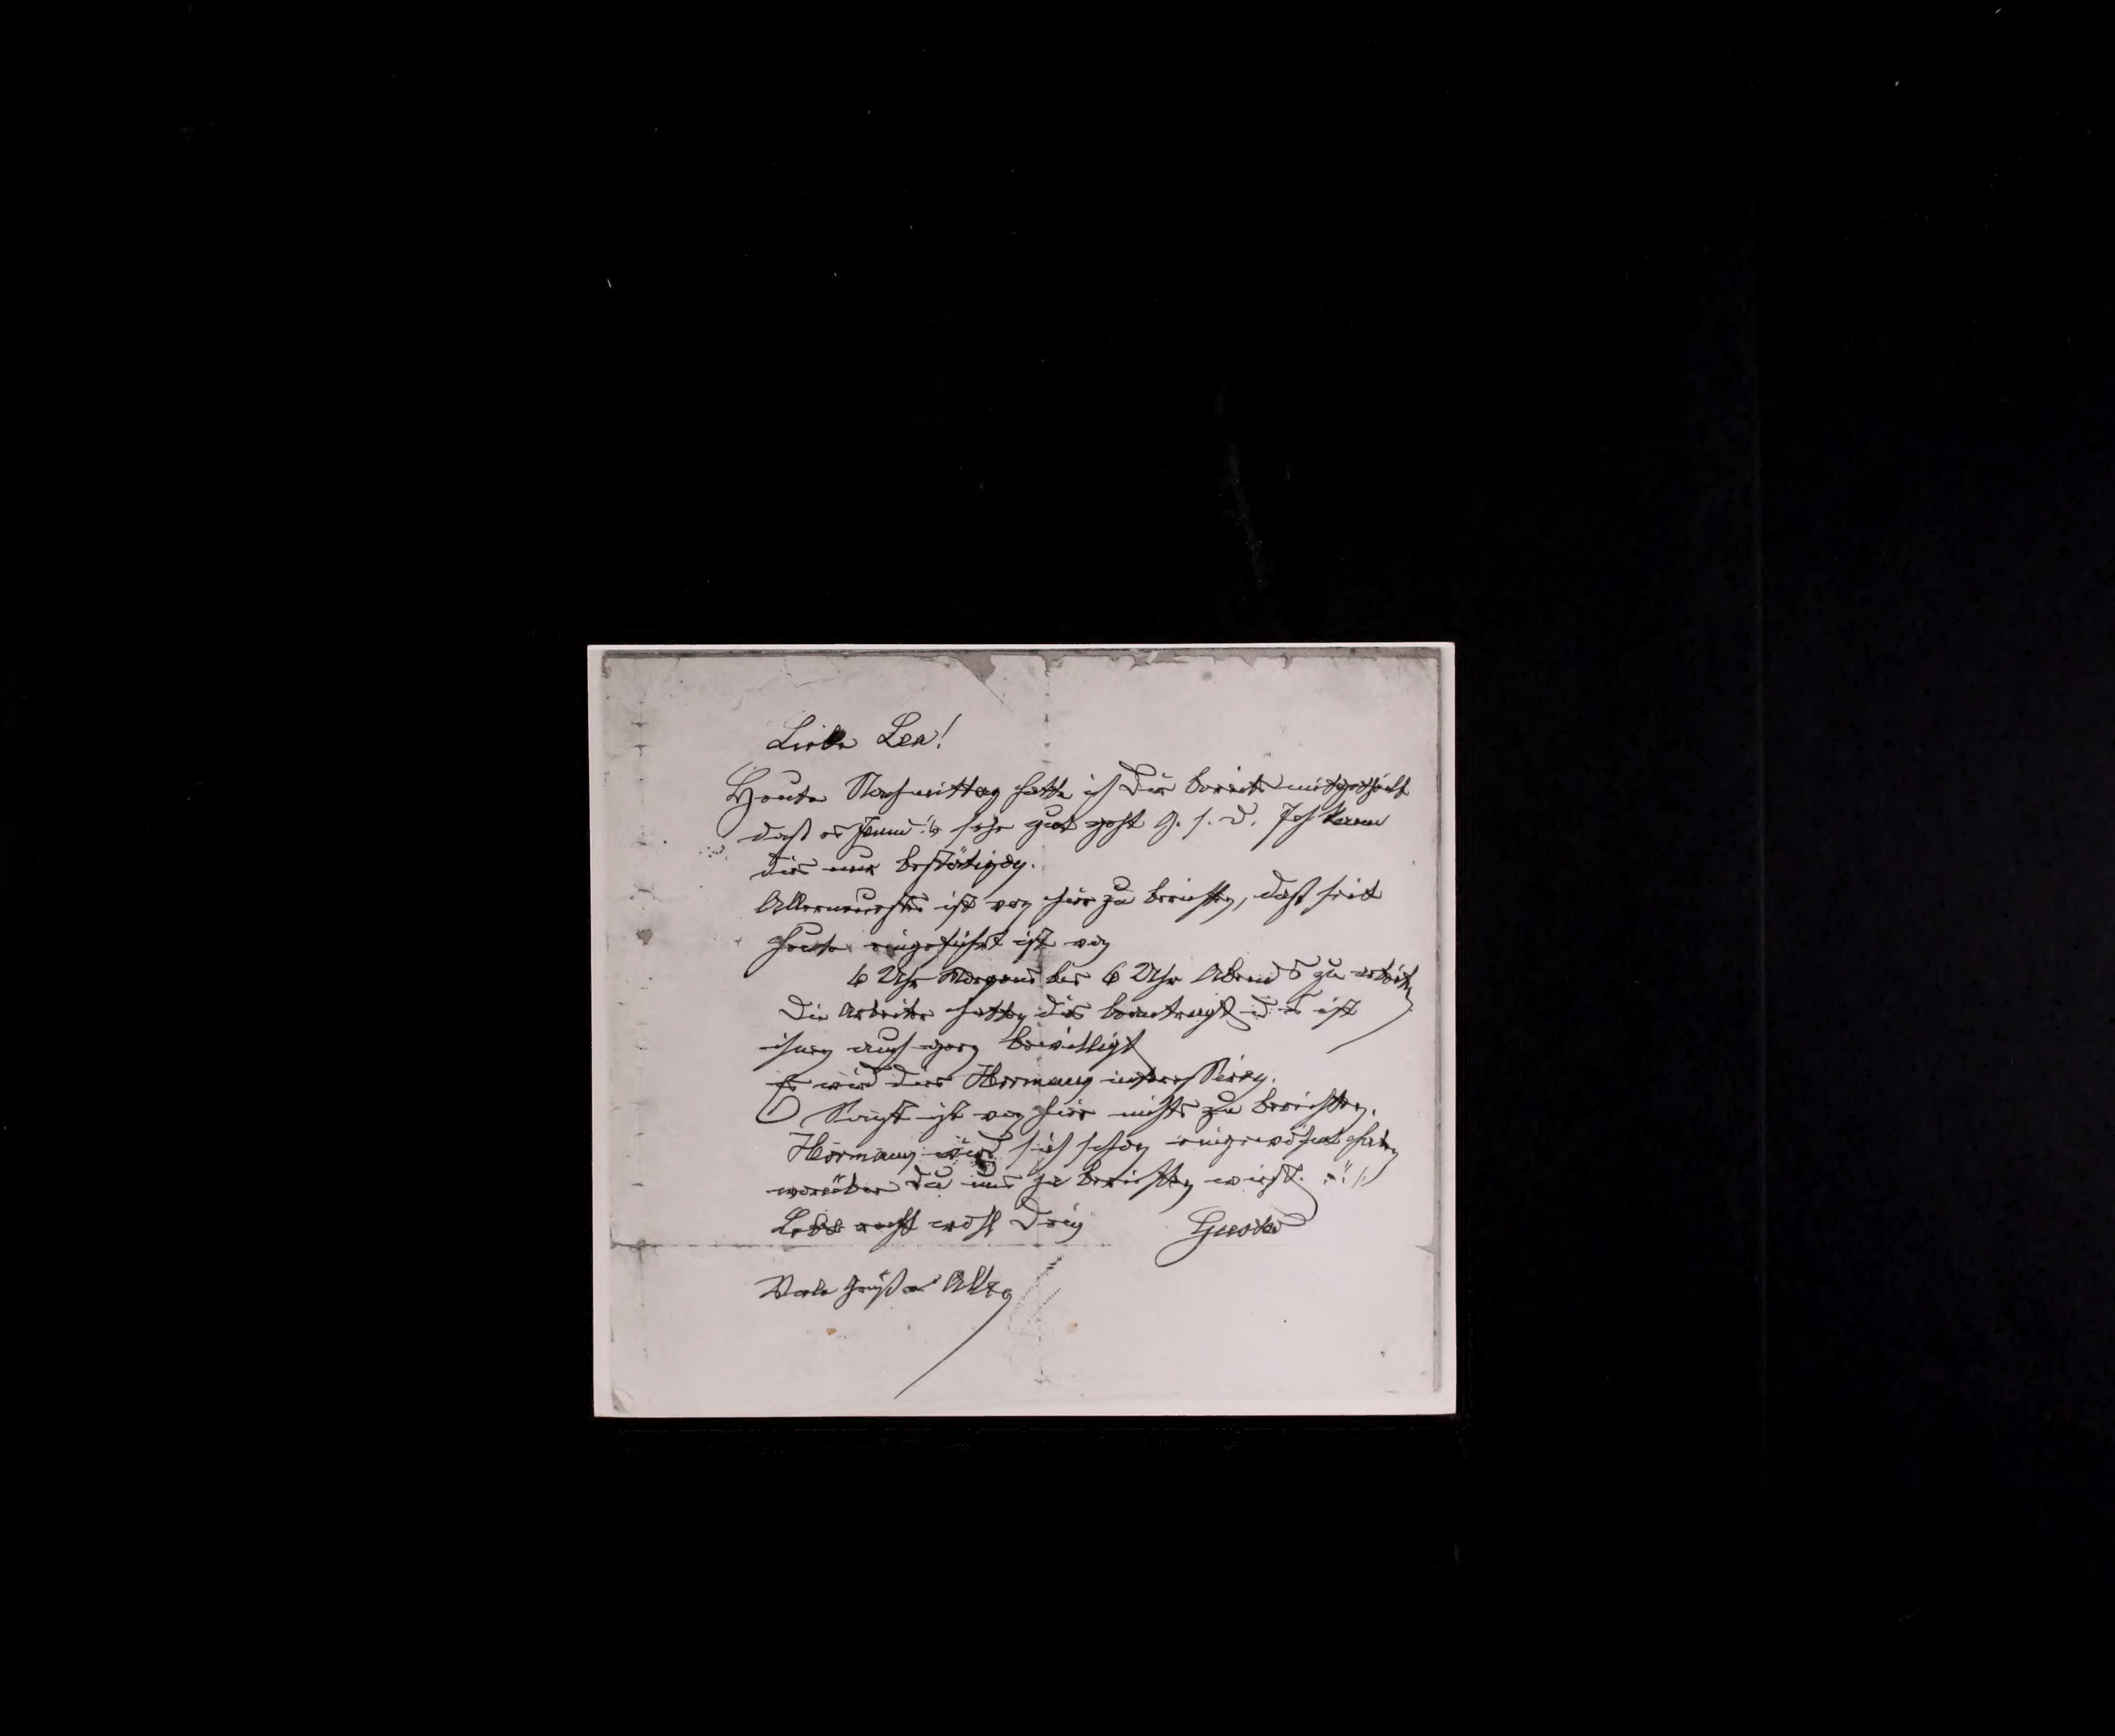 Liebe Lea!
Heute Nachmittag hatte ich Dir bereits mitgetheilt
daß es sehr gut geht G. s. D. Ich kann
dies nur bestätigen.
Allerneuestes ist von hier zu berichten, daß seit
heute eingeführt ist von
6 Uhr Morgens bis 6 Uhr Abends zu arbeiten
Die Arbeiter hatten dies beantragt u. es ist
ihnen auch gern bewilligt
Es wird dies Hermann interessiren.
Sonst ist von hier nichts zu berichten.
Hermann wird sich schon eingewöhnt haben
worüber Du uns ja berichten wirst.
Lebe recht wohl Dein Gustav
Viele Grüße Allen